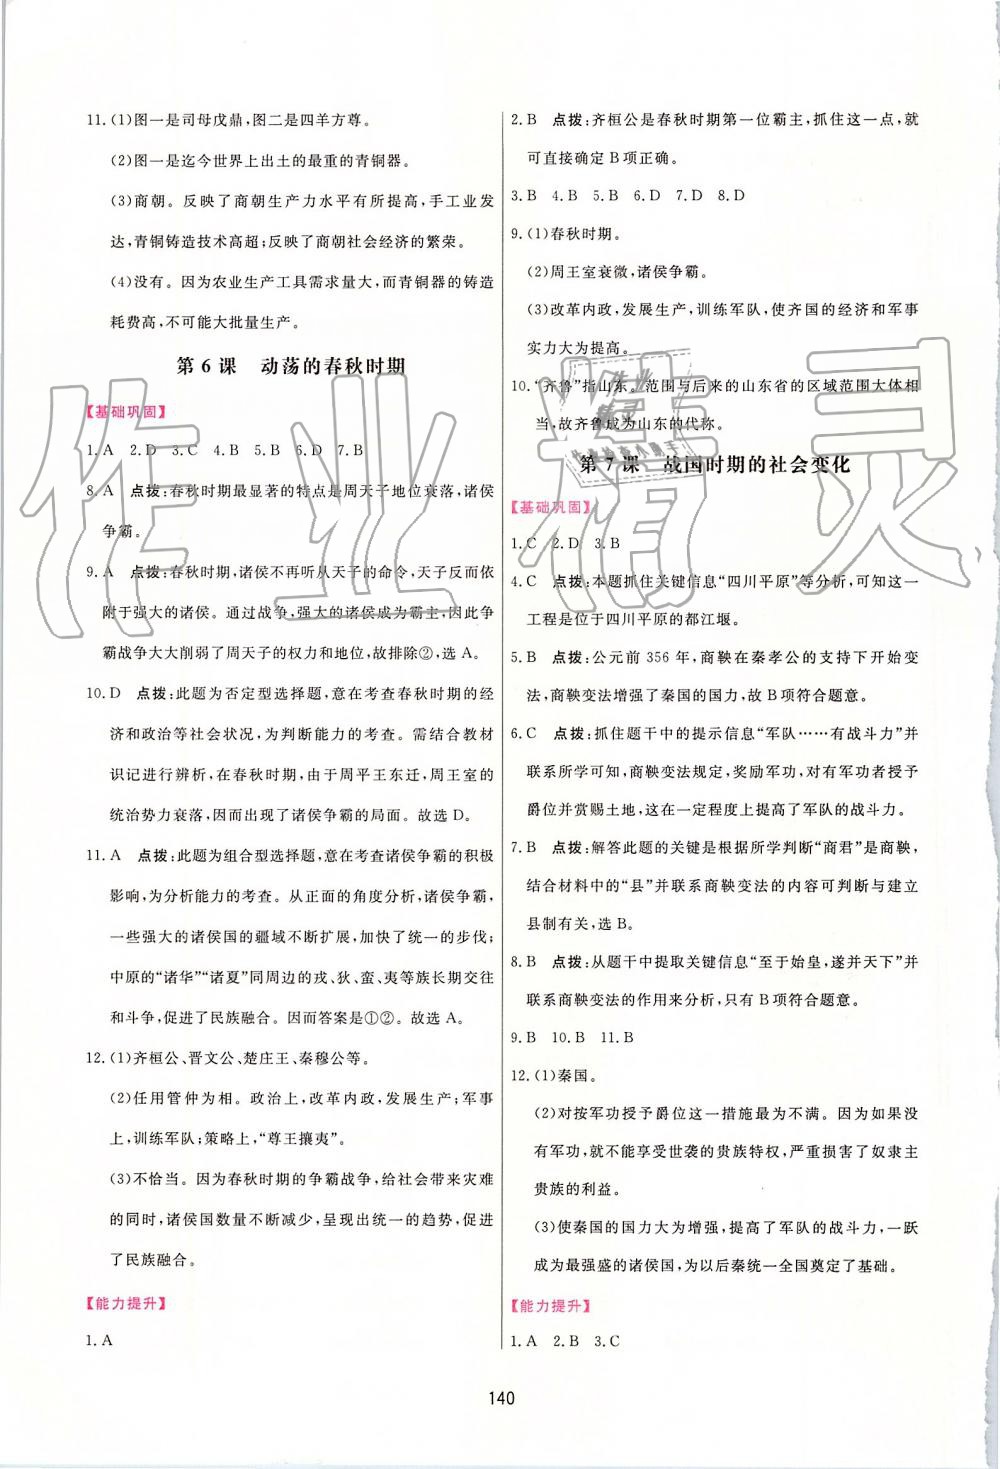 11.(1)图一是司母戊鼎,图二是四羊方尊。
(2)图一是迄今世界上出土的最重的青铜器。
(3)商朝。反映了商朝生产力水平有所提高,手工业发
达,青铜铸造技术高超;反映了商朝社会经济的繁荣。
(4)没有。因为农业生产工具需求量大,而青铜器的铸造
耗费高,不可能大批量生产。
第6课 动荡的春秋时期
【基础巩固】
1.A 2.D 3.C 4.B 5.B 6.D 7.B
8.A 点拨:春秋时期最显著的特点是周天子地位衰落,诸侯
争霸。
9.A 点拨:春秋时期,诸侯不再听从天子的命令,天子反而依
附于强大的诸侯。通过战争,强大的诸侯成为霸主,因此争
霸战争大大削弱了周天子的权力和地位,故排除②,选A。
10.D 点拨:此题为否定型选择题,意在考查春秋时期的经
济和政治等社会状况,为判断能力的考查。需结合教材
识记进行辨析,在春秋时期,由于周平王东迁,周王室的
统治势力衰落,因而出现了诸侯争霸的局面。故选D。
11.A 点拨:此题为组合型选择题,意在考查诸侯争霸的积极
影响,为分析能力的考查。从正面的角度分析,诸侯争霸,
一些强大的诸侯国的疆域不断扩展,加快了统一的步伐;
中原的“诸华”“诸夏”同周边的戎、狄、蛮、夷等族长期交往
和斗争,促进了民族融合。因而答案是①②。故选A。
12.(1)齐桓公、晋文公、楚庄王、秦穆公等。
(2)任用管仲为相。政治上,改革内政,发展生产;军事
上,训练军队;策略上,“尊王攘夷”。
(3)不恰当。因为春秋时期的争霸战争,给社会带来灾难
的同时,诸侯国数量不断减少,呈现出统一的趋势,促进
了民族融合。
【能力提升】
1.A
2.B 点拨:齐桓公是春秋时期第一位霸主,抓住这一点,就
可直接确定B项正确。
3.B 4.B 5.B 6.D 7.D 8.D
9.(1)春秋时期。
(2)周王室衰微,诸侯争霸。
(3)改革内政,发展生产,训练军队,使齐国的经济和军事
实力大为提高。
10.“齐鲁”指山东。范围与后来的山东省的区域范围大体相
当,故齐鲁成为山东的代称。
第7课 战国时期的社会变化
【基础巩固】
1.C 2.D 3.B
4.C 点拨:本题抓住关键信息“四川平原”等分析,可知这一
工程是位于四川平原的都江堰。
5.B 点拨:公元前356年,商鞅在秦孝公的支持下开始变
法,商鞅变法增强了秦国的国力,故B项符合题意。
6.C 点拨:抓住题干中的提示信息“军队……有战斗力”并
联系所学可知,商鞅变法规定,奖励军功,对有军功者授予
爵位并赏赐土地,这在一定程度上提高了军队的战斗力。
7.B 点拨:解答此题的关键是根据所学判断“商君”是商鞅,
结合材料中的“县”并联系商鞅变法的内容可判断与建立
县制有关,选B。
8.B 点拨:从题干中提取关键信息“至于始皇,遂并天下”并
联系商鞅变法的作用来分析,只有B项符合题意。
9.B 10.B 11.B
12.(1)秦国。
(2)对按军功授予爵位这一措施最为不满。因为如果没
有军功,就不能享受世袭的贵族特权,严重损害了奴隶主
贵族的利益。
(3)使秦国的国力大为增强,提高了军队的战斗力,一跃
成为最强盛的诸侯国,为以后秦统一全国奠定了基础。
【能力提升】
1.A 2.B 3.C
140
作业精灵
作业
精灵